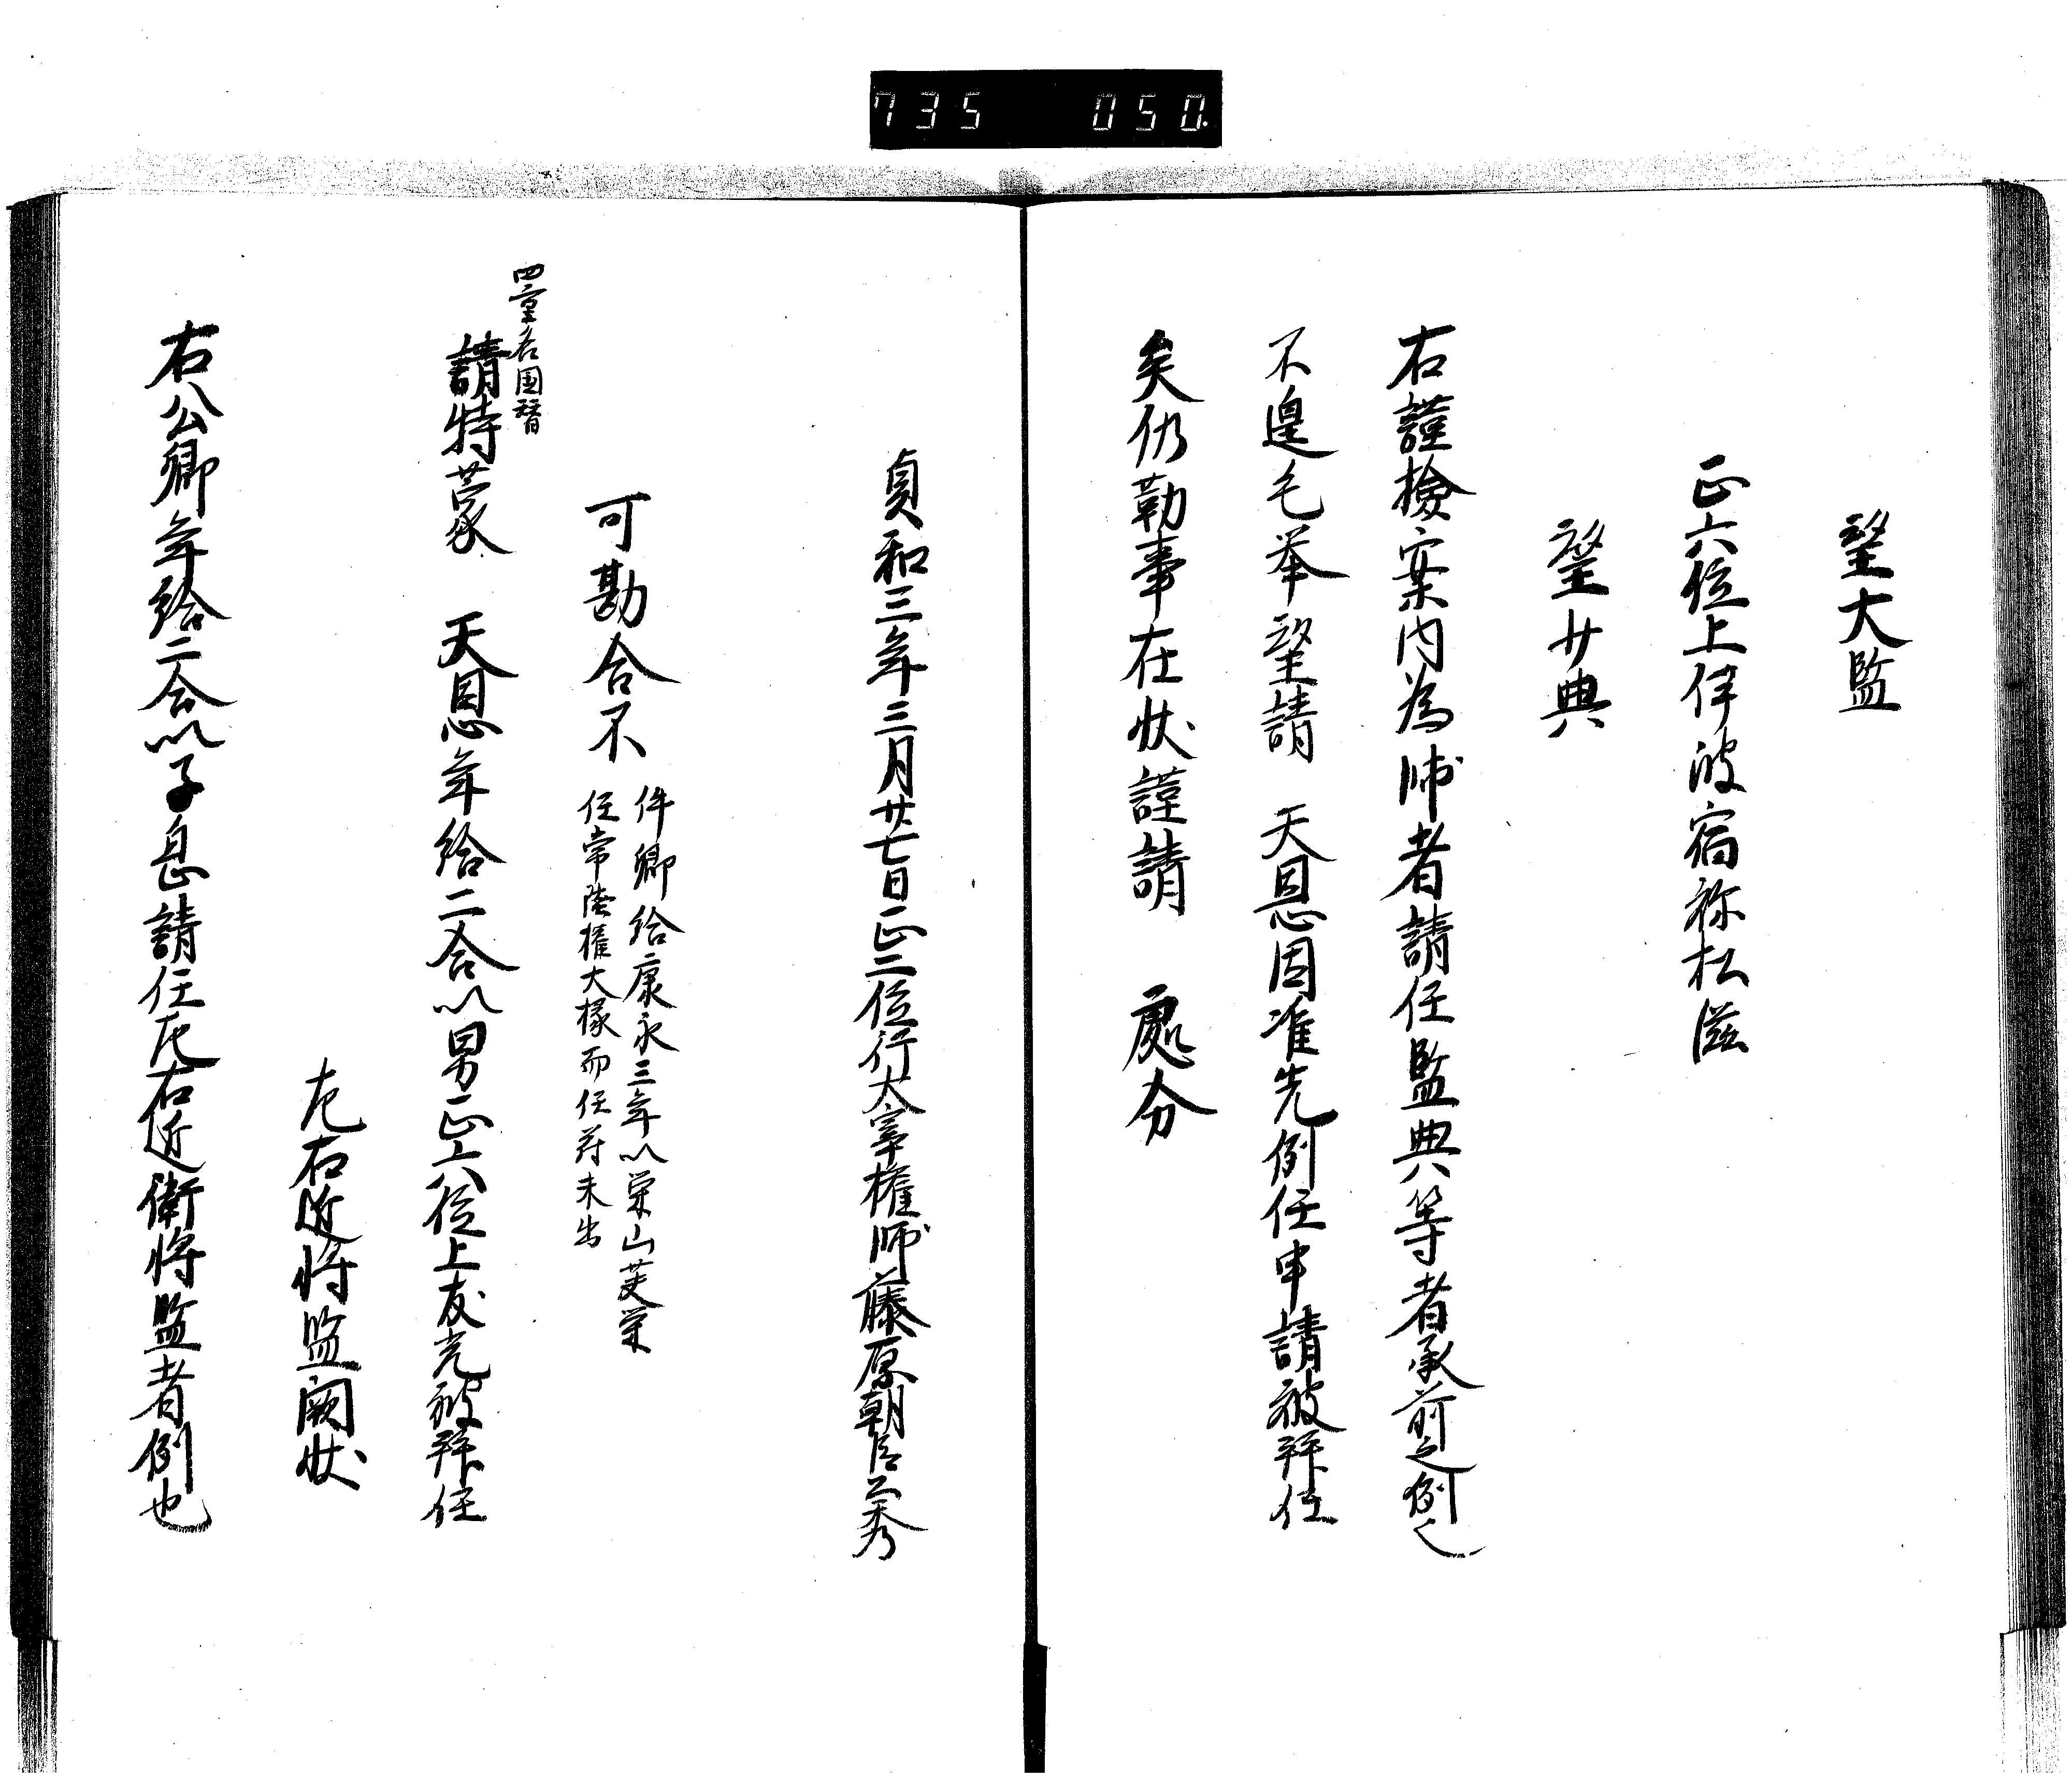 735 050.
望大監
正六位上伴波宿祢松滋
望少典
右謹撿案内為帥者請任監典等者承前之例也
不遑毛挙望請 天恩因准先例任申請被拝任
矣仍勒事在状謹請 處分
貞和三年三月廿七日正二位行太宰権帥藤原朝臣公秀
可勘合不
件卿給康永三年以栄山芙栄
任常陸権大掾而任符未出
四室名国替
請特蒙 天恩年給二合以男正六位上友光被拝任
左右近将監闕状
右公卿年給二合以子息請任左右近衛将監者例也